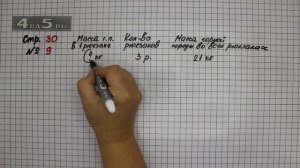 4DA5.RU
Стр. 30
№ 9
Масса г.п. в 1 рюкзаке
Кол-во рюкзаков
Масса горной породы во всех рюкзаках
? кг
3 р.
21 кг